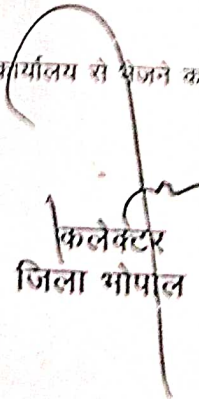 कार्यालय से भेजने
कलेक्टर
जिला भोपाल